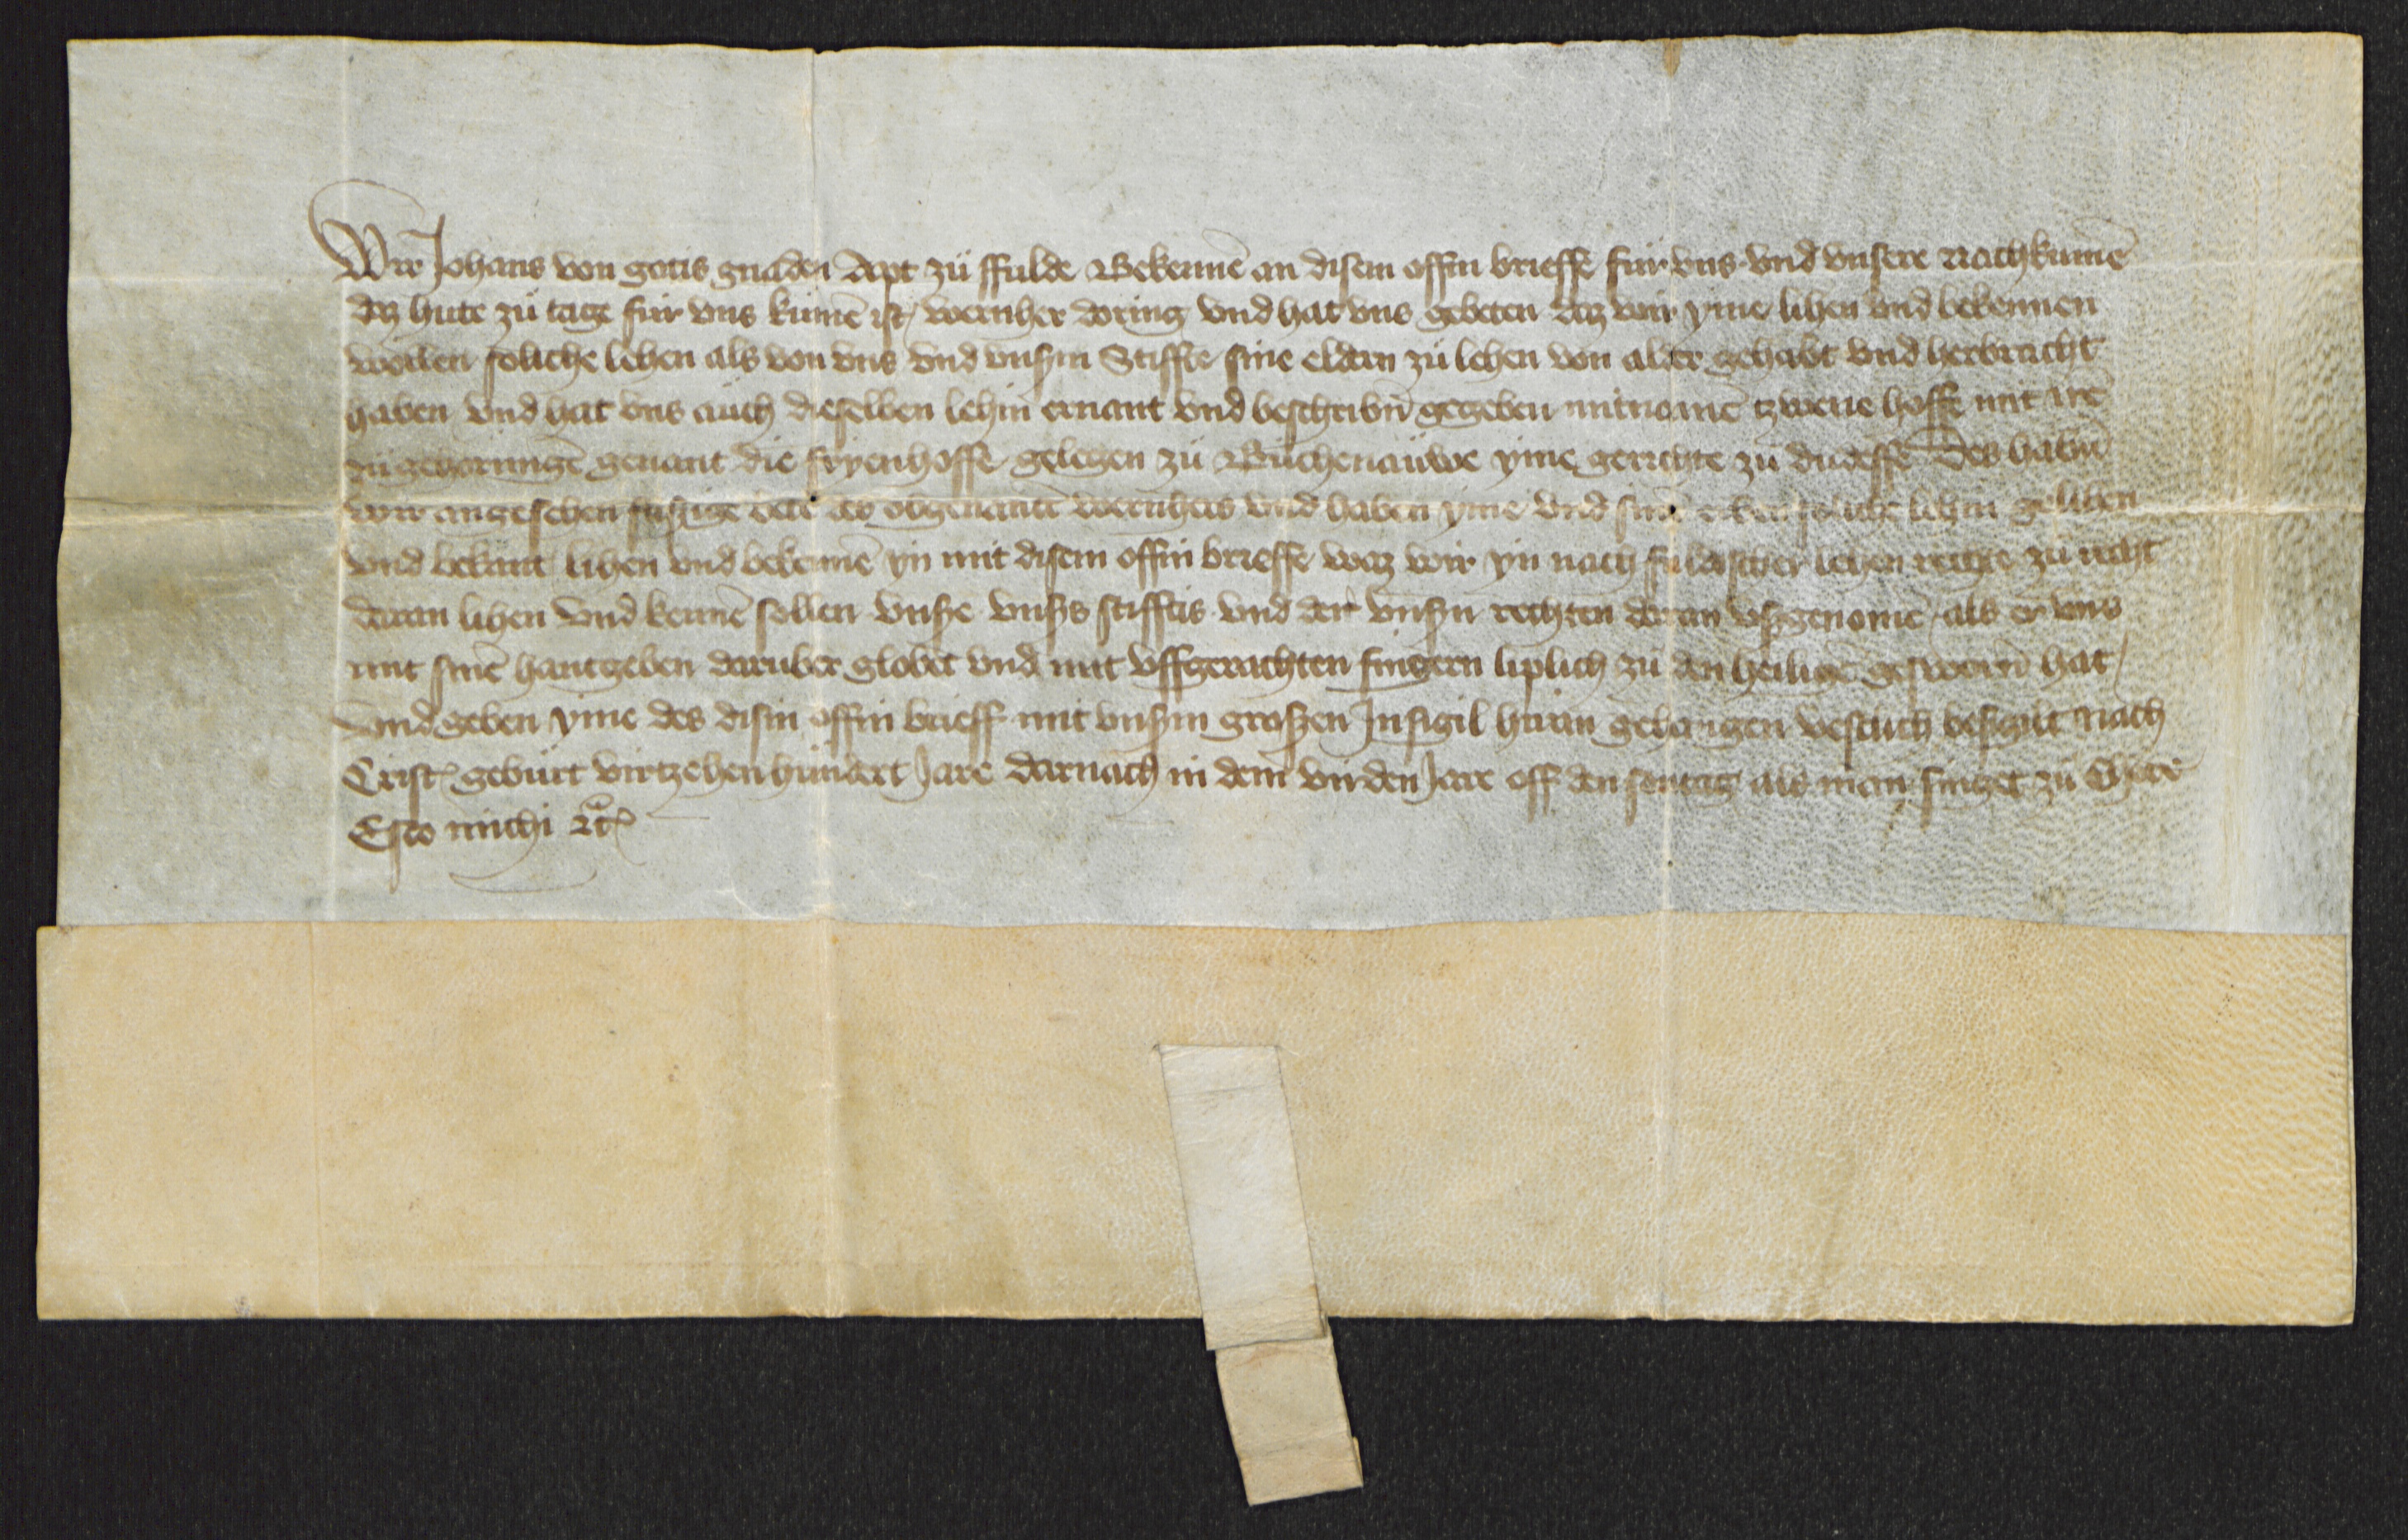 Wir Johans von gotis gnaden Apt zü ffulde Bekenne͂ an disem offin brieffe für vns vnd vnsere nachküme͂
dz hute zü tage für vns küme͂ ist / wernher doring vnd hat vns gebeten dz wir yme lihen vnd bekennen
wöllen soliche lehen als von vns vnd vnsßm Stiffte sine eldern zü lehen von alder gehabt vnd herbracht
haben vnd hat vns auch dieselben lehin ernant vnd beschribn͂ gegeben mitname͂ tzwene hoffe mit ire͂
zügehorunge͂ genant die fryenhoffe gelegen zü Büchenaüwe yme gerichte zü
wir angesehen flißige bete des obgenante͂ wernhers vnd haben yme vnd sine͂ erben soliche lehin gelihen
vnd bekant lihen vnd bekenne͂ yn mit disem offin brieffe waz wir yn nach fuldischer lehen rechte zü recht
daran lihen vnd kenne͂ sollen vnße vnßs stifftis vnd der vnßn rechten daran vßgenome͂ als er vns
mit sine͂ hantgeben darüber globet vnd mit vffgerachten fingern liplich zü den heilige͂ gesworn͂ hat /
vnd geben yme des disin offin brieff mit vnßm großen Jnsigil hiran gehangen vestlich besigilt nach
Crist͂ gebürt virtzehenhündert Jare darnach in dem virden Jare off den sontag als man singet zü Chore
Esto michi ⁊c͂